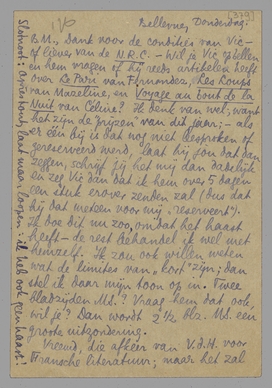 Bellevue, Donderdag.
B.M., Dank voor de condities van Vic -
of liever van de N.R.C. - Wil je Vic opbellen
en hem vragen of hij reeds artikelen heeft
over Le Pari van Fernandez, Les Loups
van Mazeline, en Voyage au bout de la
Nuit van Céline? Ik denk van wel; want
het zijn de prijzen van dit jaar; - als
er één bij is dat nog niet besproken of
gereserveerd werd, laat hij jou dat dan
zeggen, schrijf jij het mij dan dadelijk
en zeg Vic dan dat ik hem over 5 dagen
een stuk erover zenden zal (dus dat
hij dat meteen voor mij "reserveert").
Ik doe dit nu zoo, omdat het haast
heeft - de rest behandel ik wel met
hemzelf. Ik zou ook willen weten
wat de limites van "kort" zijn; dan
stel ik daar mijn toon op in. Twee
bladzijden MS.? Vraag hem dat ook,
wil je? Dan wordt 2 1/2 blz. MS. een
groote uitzondering.
Vreemd, die afkeer van V.d.H. voor
Fransche literatuur; maar het zal
laat maar loopen; ik heb ook geen haast!